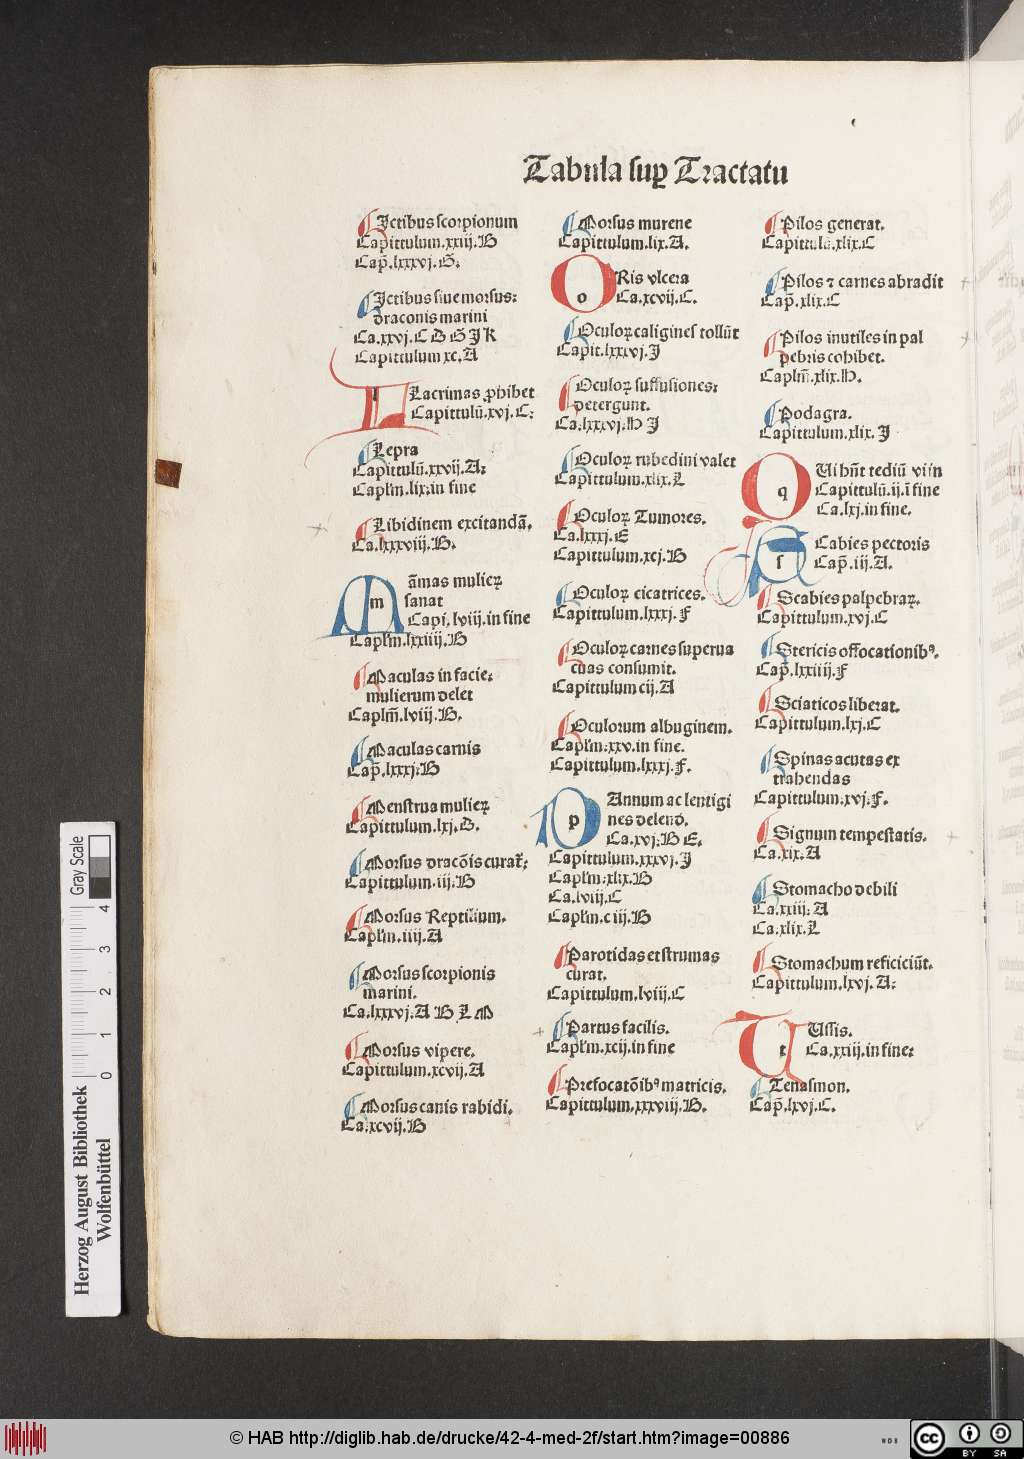 Tabula suꝑ Tractatu
Ictibus scorpionum
Capittulum.xxiij.B
Cap̄.lxxxvj.G:
Ictibus siue morsus:
draconis marini
Ca.xxvj.C D G J K
Capittulum xc.A
l
Lacrimas ꝓhibet
Capittulū.xvj.C:
Lepra
Capittulū.xxvij.A:
Caplm̄.lix:in fine
Libidinem excitandā.
Ca.lxxxviij.B.
m
āmas mulieꝝ
sanat
Capi. lviij.in fine
Caplm̄.lxxiiij.B
Maculas in facie:
mulierum delet
Caplm̄.lviij.B.
Maculas carnis
Cap̄.lxxxj:B
Menstrua mulieꝝ
Capittulum.lxj.D.
Morsus dracōis curat̄:
Capittulum.iij:B
Morsus Reptilium.
Caplm̄.iiij.A
Morsus scorpionis
marini.
Ca.lxxxvj.A B L M
Morsus vipere.
Capittulum.xcvij.A
Morsus canis rabidi.
Ca.xcvij.B
Morsus murene
Capittulum.lix.A.
o
Ris vlcera
Ca.xcvij.C.
Oculoꝝ caligineſ tollūt
Capit.lxxxvj.J
Oculoꝝ suffusiones:
detergunt.
Ca.lxxxvj:H J
Oculoꝝ rubedini valet
Capittulum.xlix.L
Oculoꝝ Tumores.
Ca.lxxxj.E
Capittulum.xcj.B
Oculoꝝ cicatrices.
Capittulum.lxxxj.F
Oculoꝝ carnes superua
cuas consumit.
Capittulum cij.A
Oculorum albuginem.
Caplm̄:xxv.in fine.
Capittulum.lxxxj.F.
p
Annum ac lentigi
nes delend̄.
Ca.xvj:B E.
Capittulum.xxxvj.J
Caplm̄:xlix.B
Ca.lviij.C
Caplm̄.ciij.B
Parotidas et strumas
curat.
Capittulum.lviij.C
Partus facilis.
Caplm̄.xcij.in fine
Prefocatōibꝰ matricis.
Capittulum.xxxviij.B.
Pilos generat.
Capittulū.xlix.C
Pilos ⁊ carnes abradit
Cap̄.xlix.C
Pilos inutiles in pal
pebris cohibet.
Caplm̄.xlix.H.
Podagra.
Capittulum.xlix.J
q
Ui hn̄t tediū viin
Capittulū.ij.ī fine
Ca.lxj.in fine.
s
Cabies pectoris
Cap̄.iij.A.
Scabies palpebraꝝ.
Capittulum.xvj.C
Stericis offocationibꝰ.
Cap̄.lxxiiij.F
Sciaticos liberat.
Capittulum.lxj.C
Spinas acutas ex
trahendas
Capittulum:xvj.F.
Signum tempestatis.
Ca.xix.A
Stomacho debili
Ca.xxiij:A
Ca:xlix.L
Stomachum reficiciūt.
Capittulum.lxvj.A:
t
Ussis.
Ca.xxiij.in fine:
Tenasmon.
Cap̄.lxvj.C.
Herzog August Bibliothek
Wolfenbüttel
Gray Scale
0 1 2 3 4
© HAB http://diglib.hab.de/drucke/42-4-med-2f/start.htm?image=00886
WDB
cc BY SA